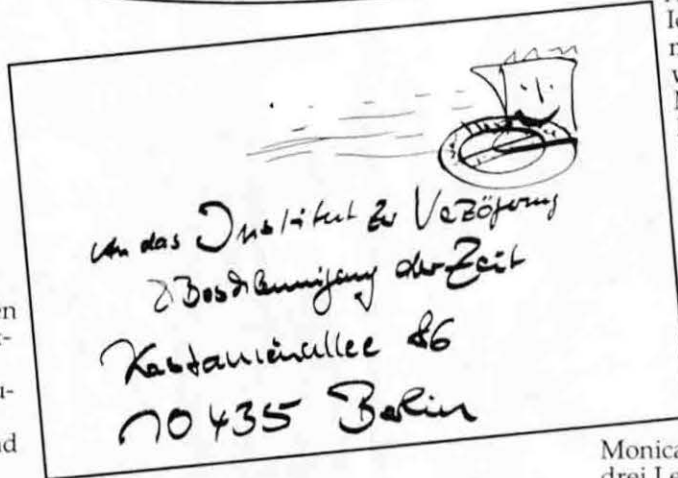 An das Institut zur Verzögerung
& Beschleunigung der Zeit
Kastanienallee 86
10435 Berlin
en
Monica
drei Le